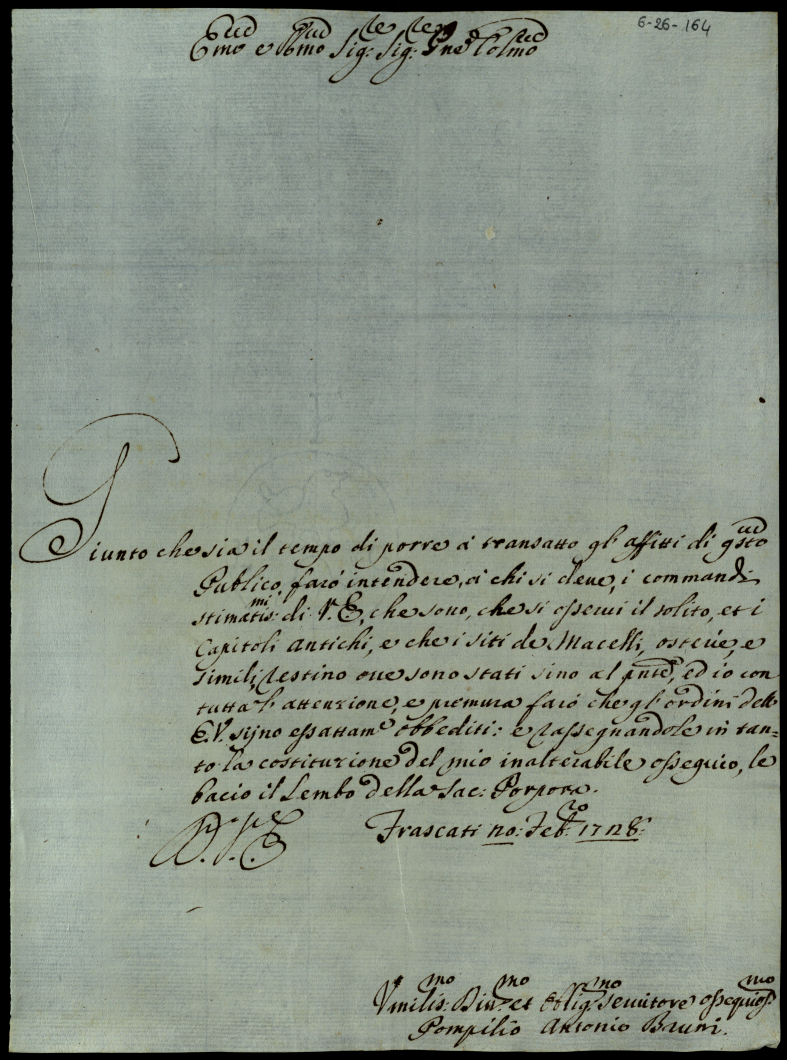 6-26-164
Emo e Rmo Sig:re Sig:re Pne Colmo
Giunto che sia il tempo di porre à transatto gl'affitti di qsto
Publico, farò intendere, à chi si deve, i commandi
stimatis:mi di V. E, che sono, che si osservi il solito, et i
Capitoli antichi, e che i siti de Macelli, osterie, e
simili, restino ove sono stati sino al pnte, ed io con
tutta l'attenzione, e premura farò che gl'ordini dell'
E.V. sijno essattame obbediti: e rassegnandole in tan=
to la costituzione del mio inalterabile ossequio, le
bacio il Lembo della Sac: Porpora.
D. V. E. Frascati 20: Feb:ro 1728:
Vmilis:mo Div:mo et Oblig:mo Servitore ossequios:mo
Pompilio Antonio Bruni.